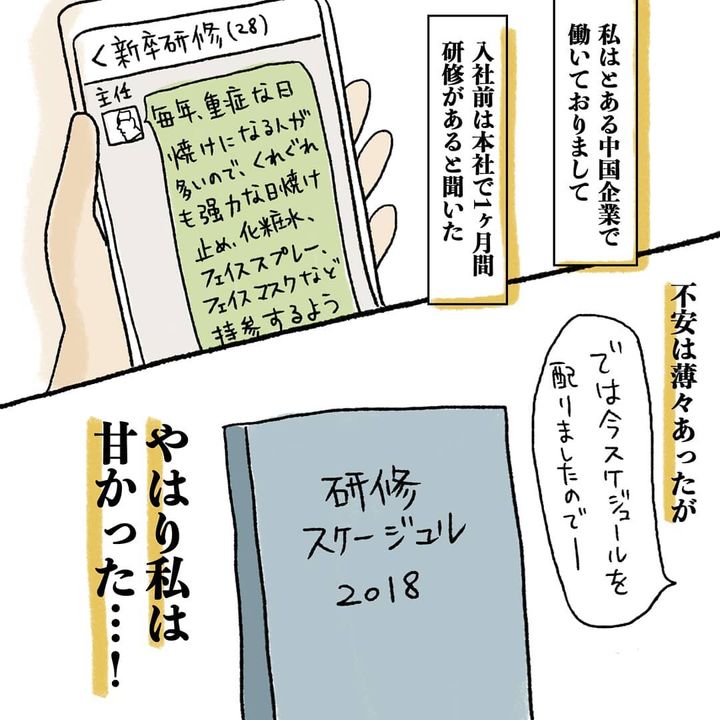 私はとある中国企業で
働いておりまして
入社前は本社で1ヶ月間
研修があると聞いた
<新卒研修(28)
主任
毎年、重症な日
焼けになる人が
多いので、くれぐれ
も強力な日焼け
止め、化粧水、
フェイススプレー、
フェイスマスクなど
持参するよう
不安は薄々あったが
では今スケジュールを
配りましたのでー
研修
スケージュル
2018
やはり私は
甘かった…!